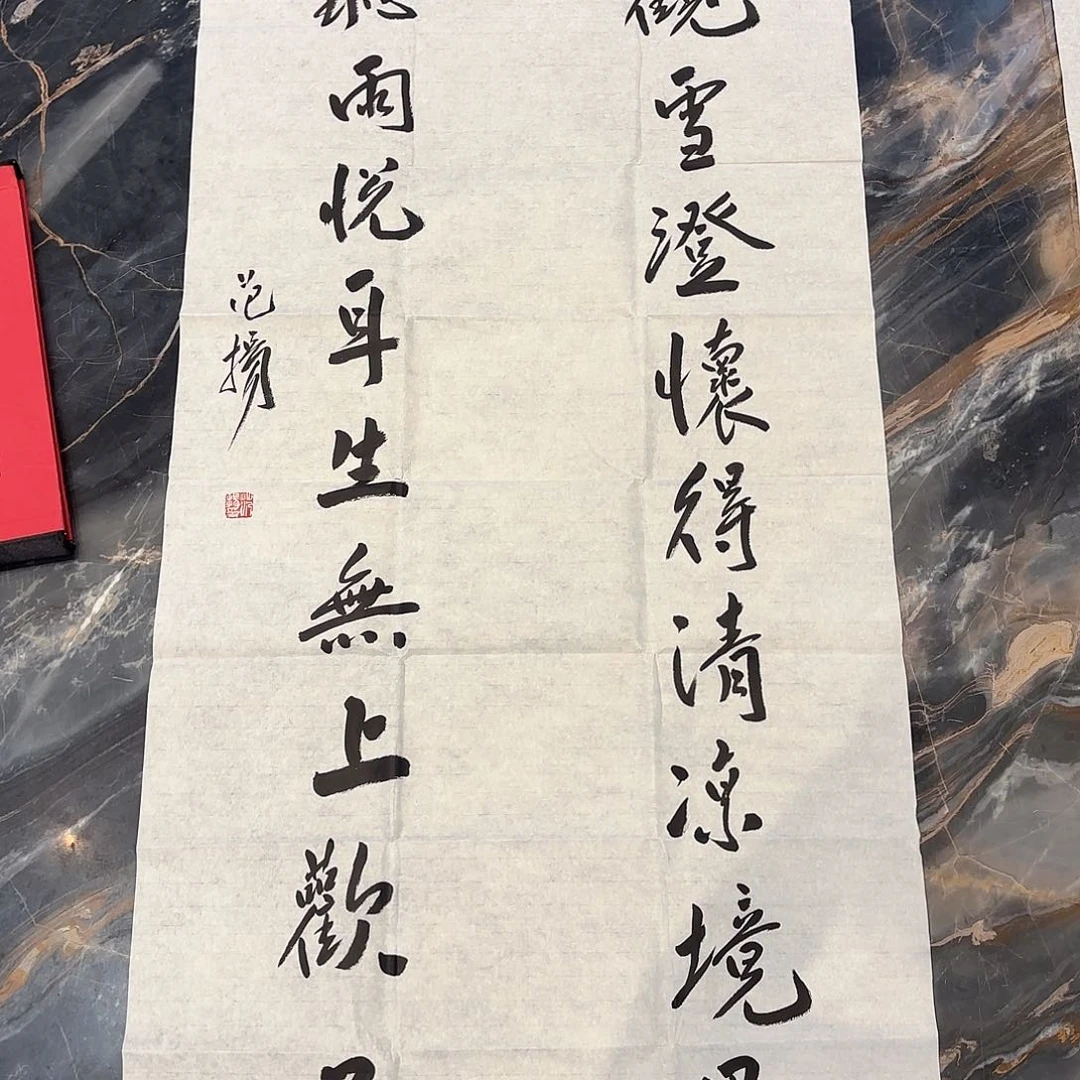 觀雪澄懷得清凉境
雨悦耳生無上歡
范揚